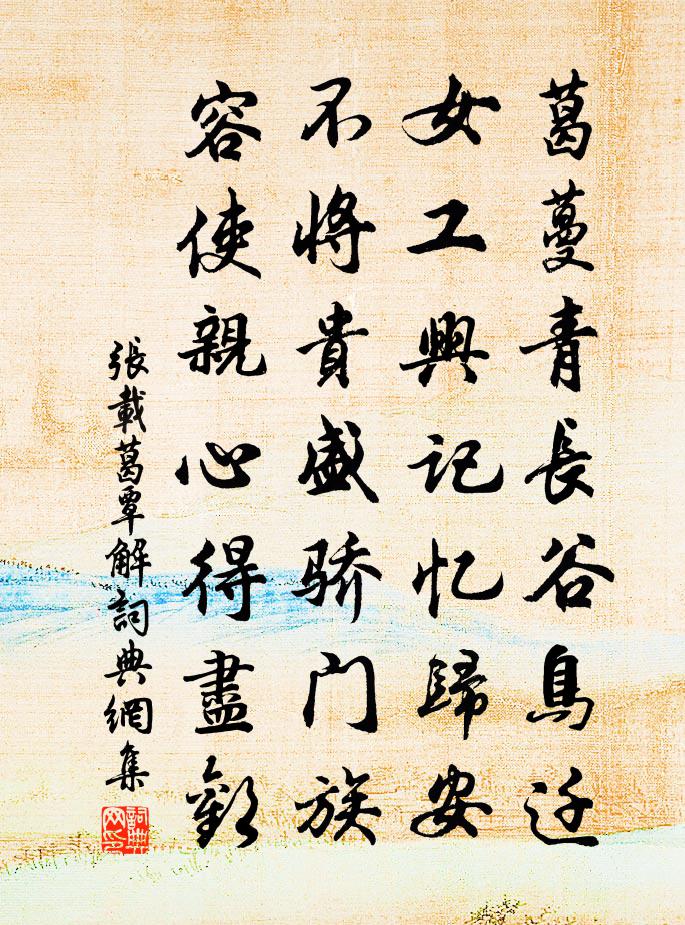 葛蔓青長谷鳥迁
女工興記忆歸安
不將貴盛骄门族
容使親心得盡歡
張載葛覃解詞典網集
詞典网印